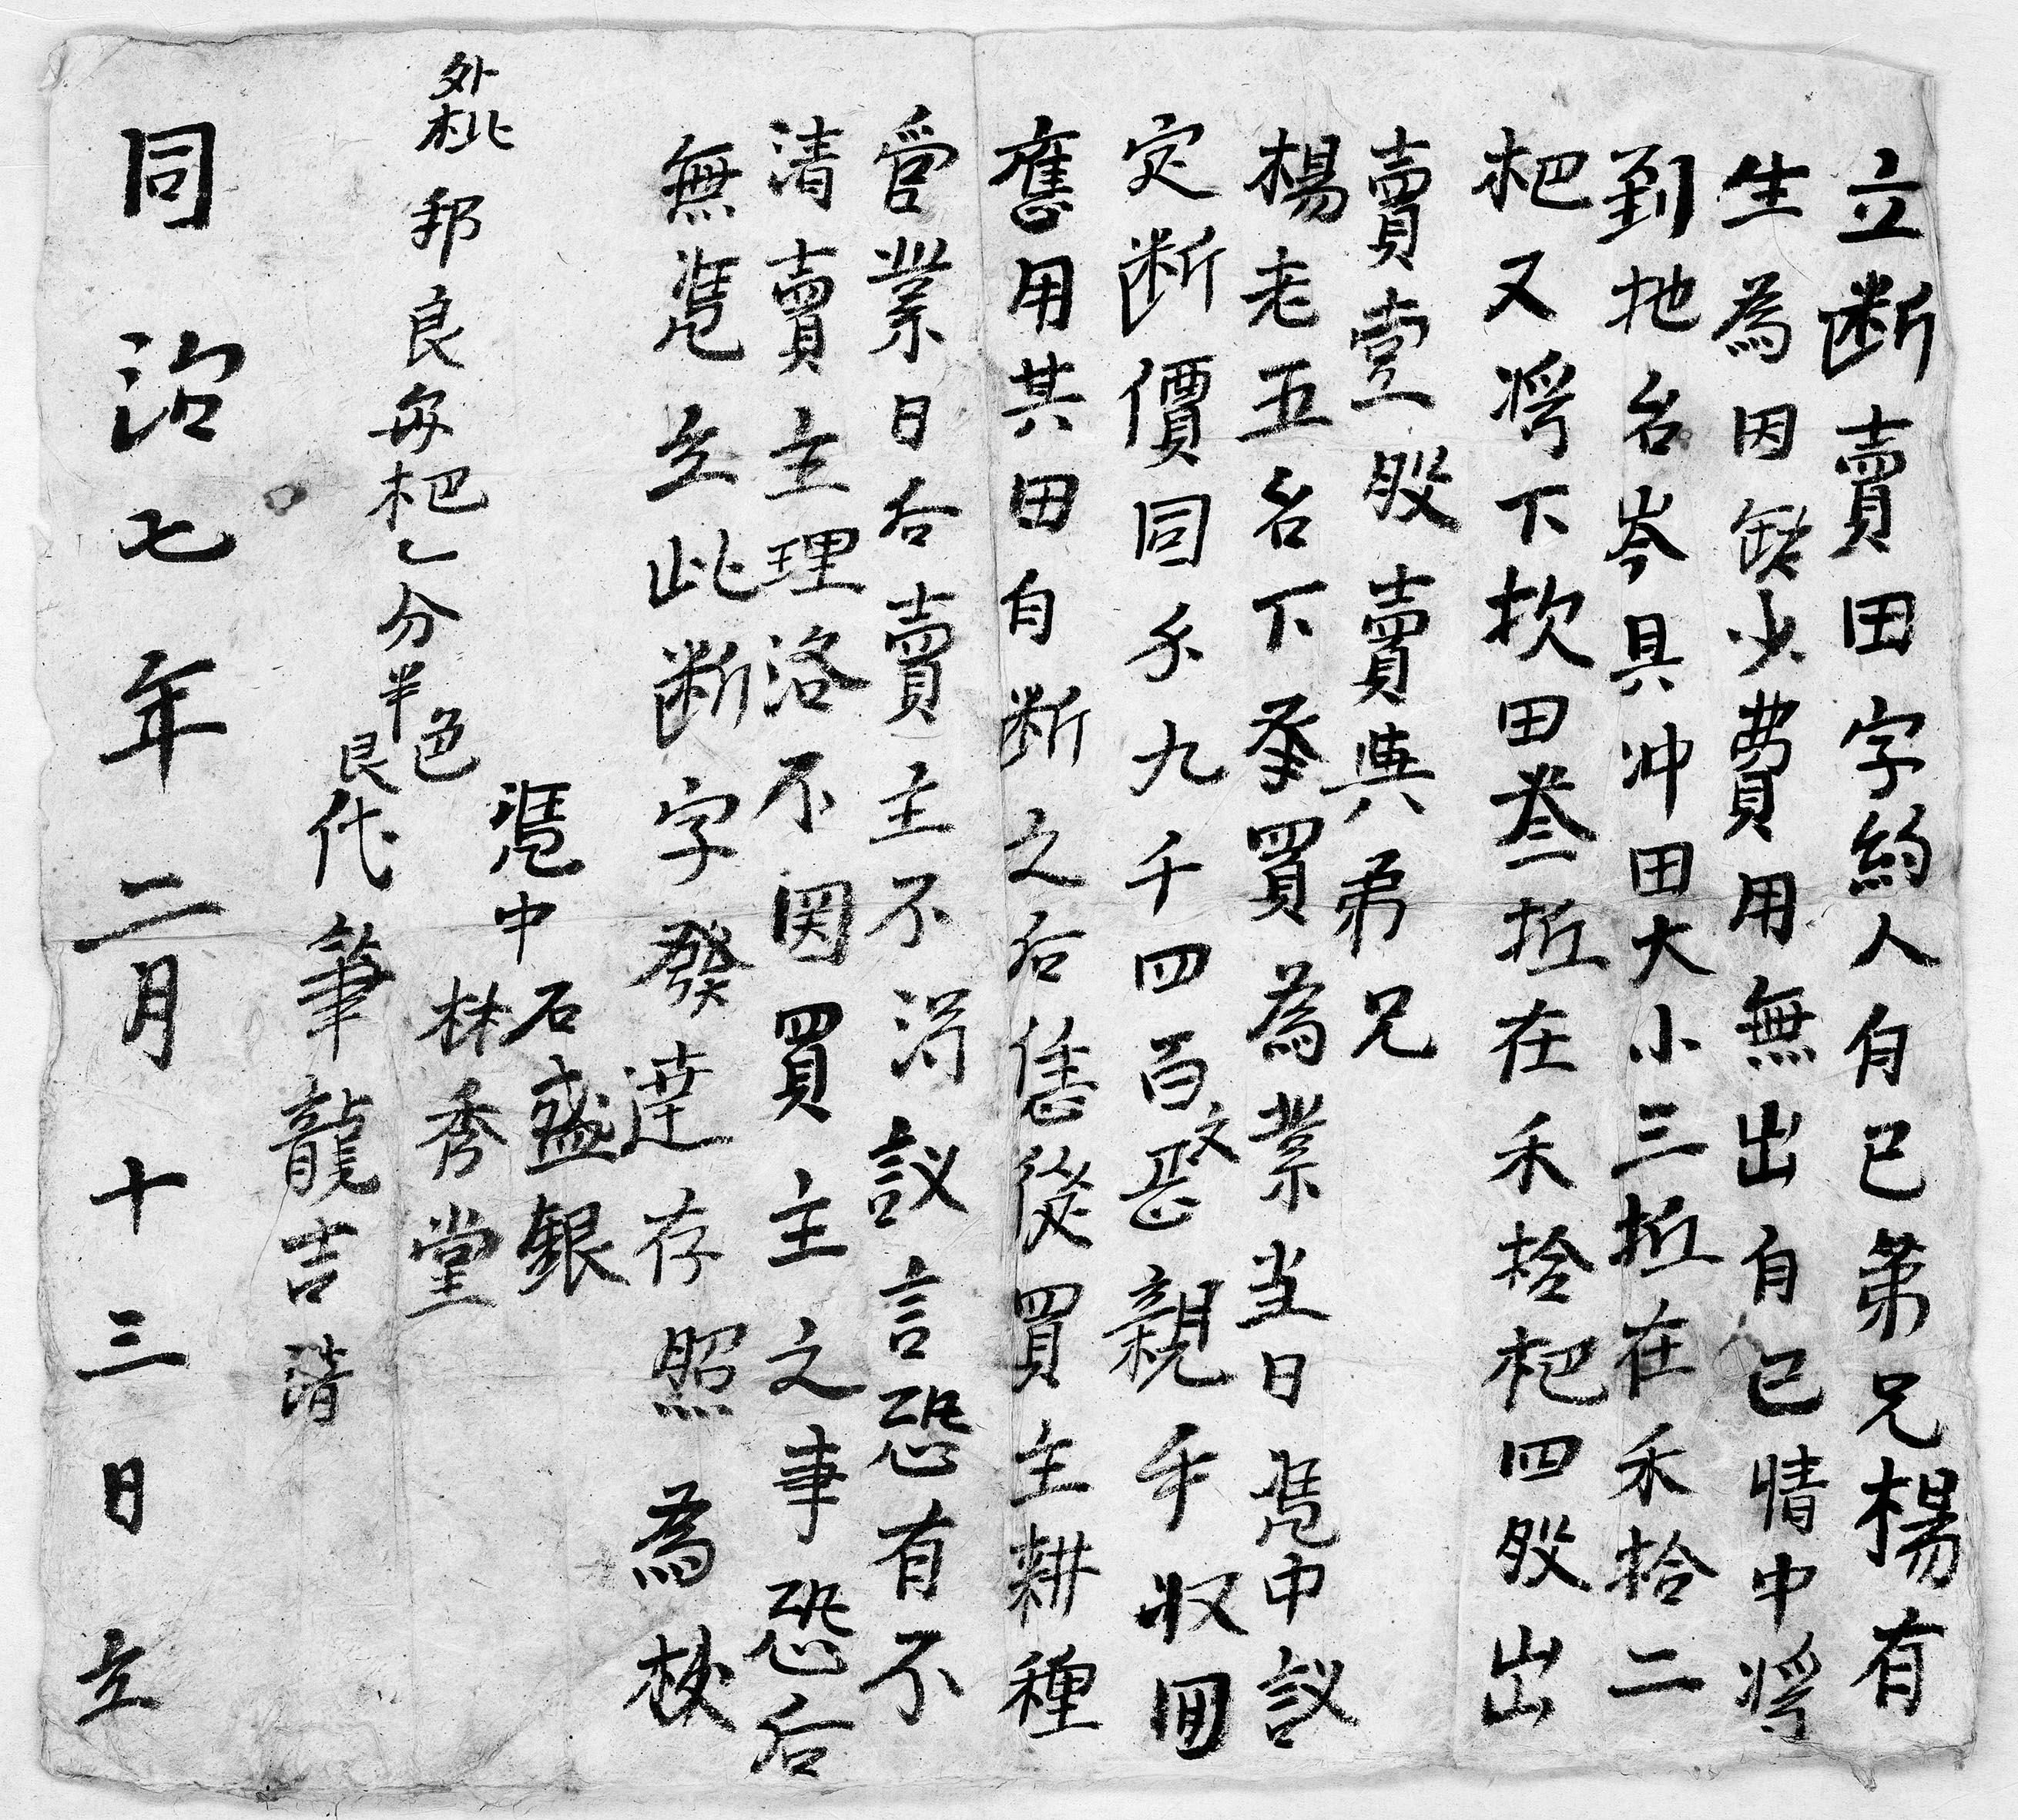 立断賣田字約人自已弟兄楊有
生為因缺少費用無出自已情中将
到地名岑具冲田大小三坵在禾拾二
杷又将下坎田叁坵在禾拾杷四股出
賣壹股賣與弟兄
楊老五名下承買為業当日凭中議
定断價同錢九千四百文整親手收回
應用其田自断之后恁從買主耕種
管業日后賣主不得議言恐有不
清賣主理洛不関買主之事恐后
無凭立此断字發達存照為據
凴中石盛銀
林秀堂
外批 邦良每杷乙分半色良
代筆龍吉清
同治七年二月十三日立